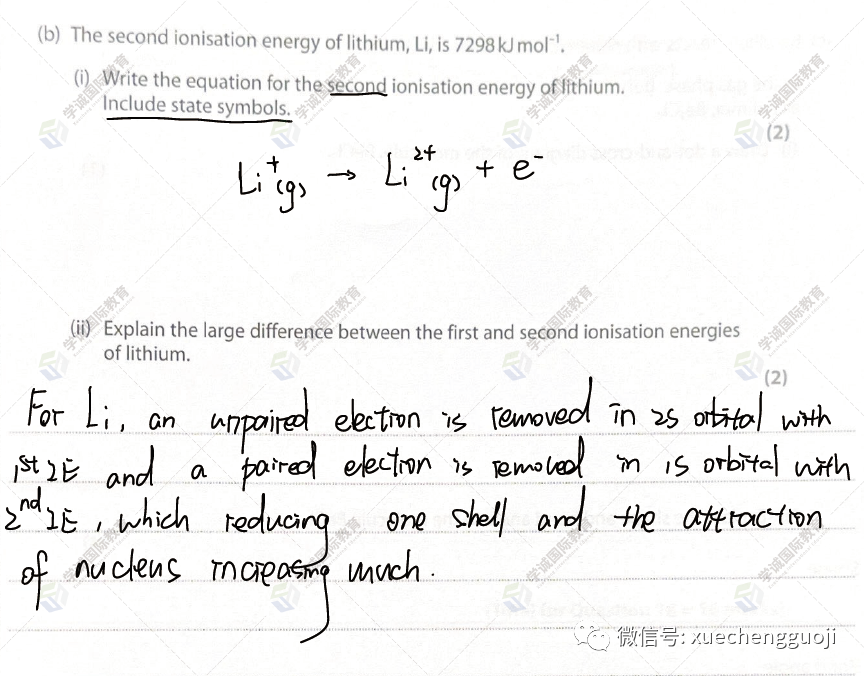 (b) The second ionisation energy of lithium, Li, is 7298 kJ mol⁻¹.
(i) Write the equation for the second ionisation energy of lithium.
Include state symbols.
(2)
Li⁺(g) → Li²⁺(g) + e⁻
(ii) Explain the large difference between the first and second ionisation energies
of lithium.
(2)
For Li, an unpaired electron is removed in 2s orbital with
1st IE and a paired electron is removed in 1s orbital with
2nd IE, which reducing one shell and the attraction
of nucleus increasing much.
微信号: xuechengguoji
学诚国际教育